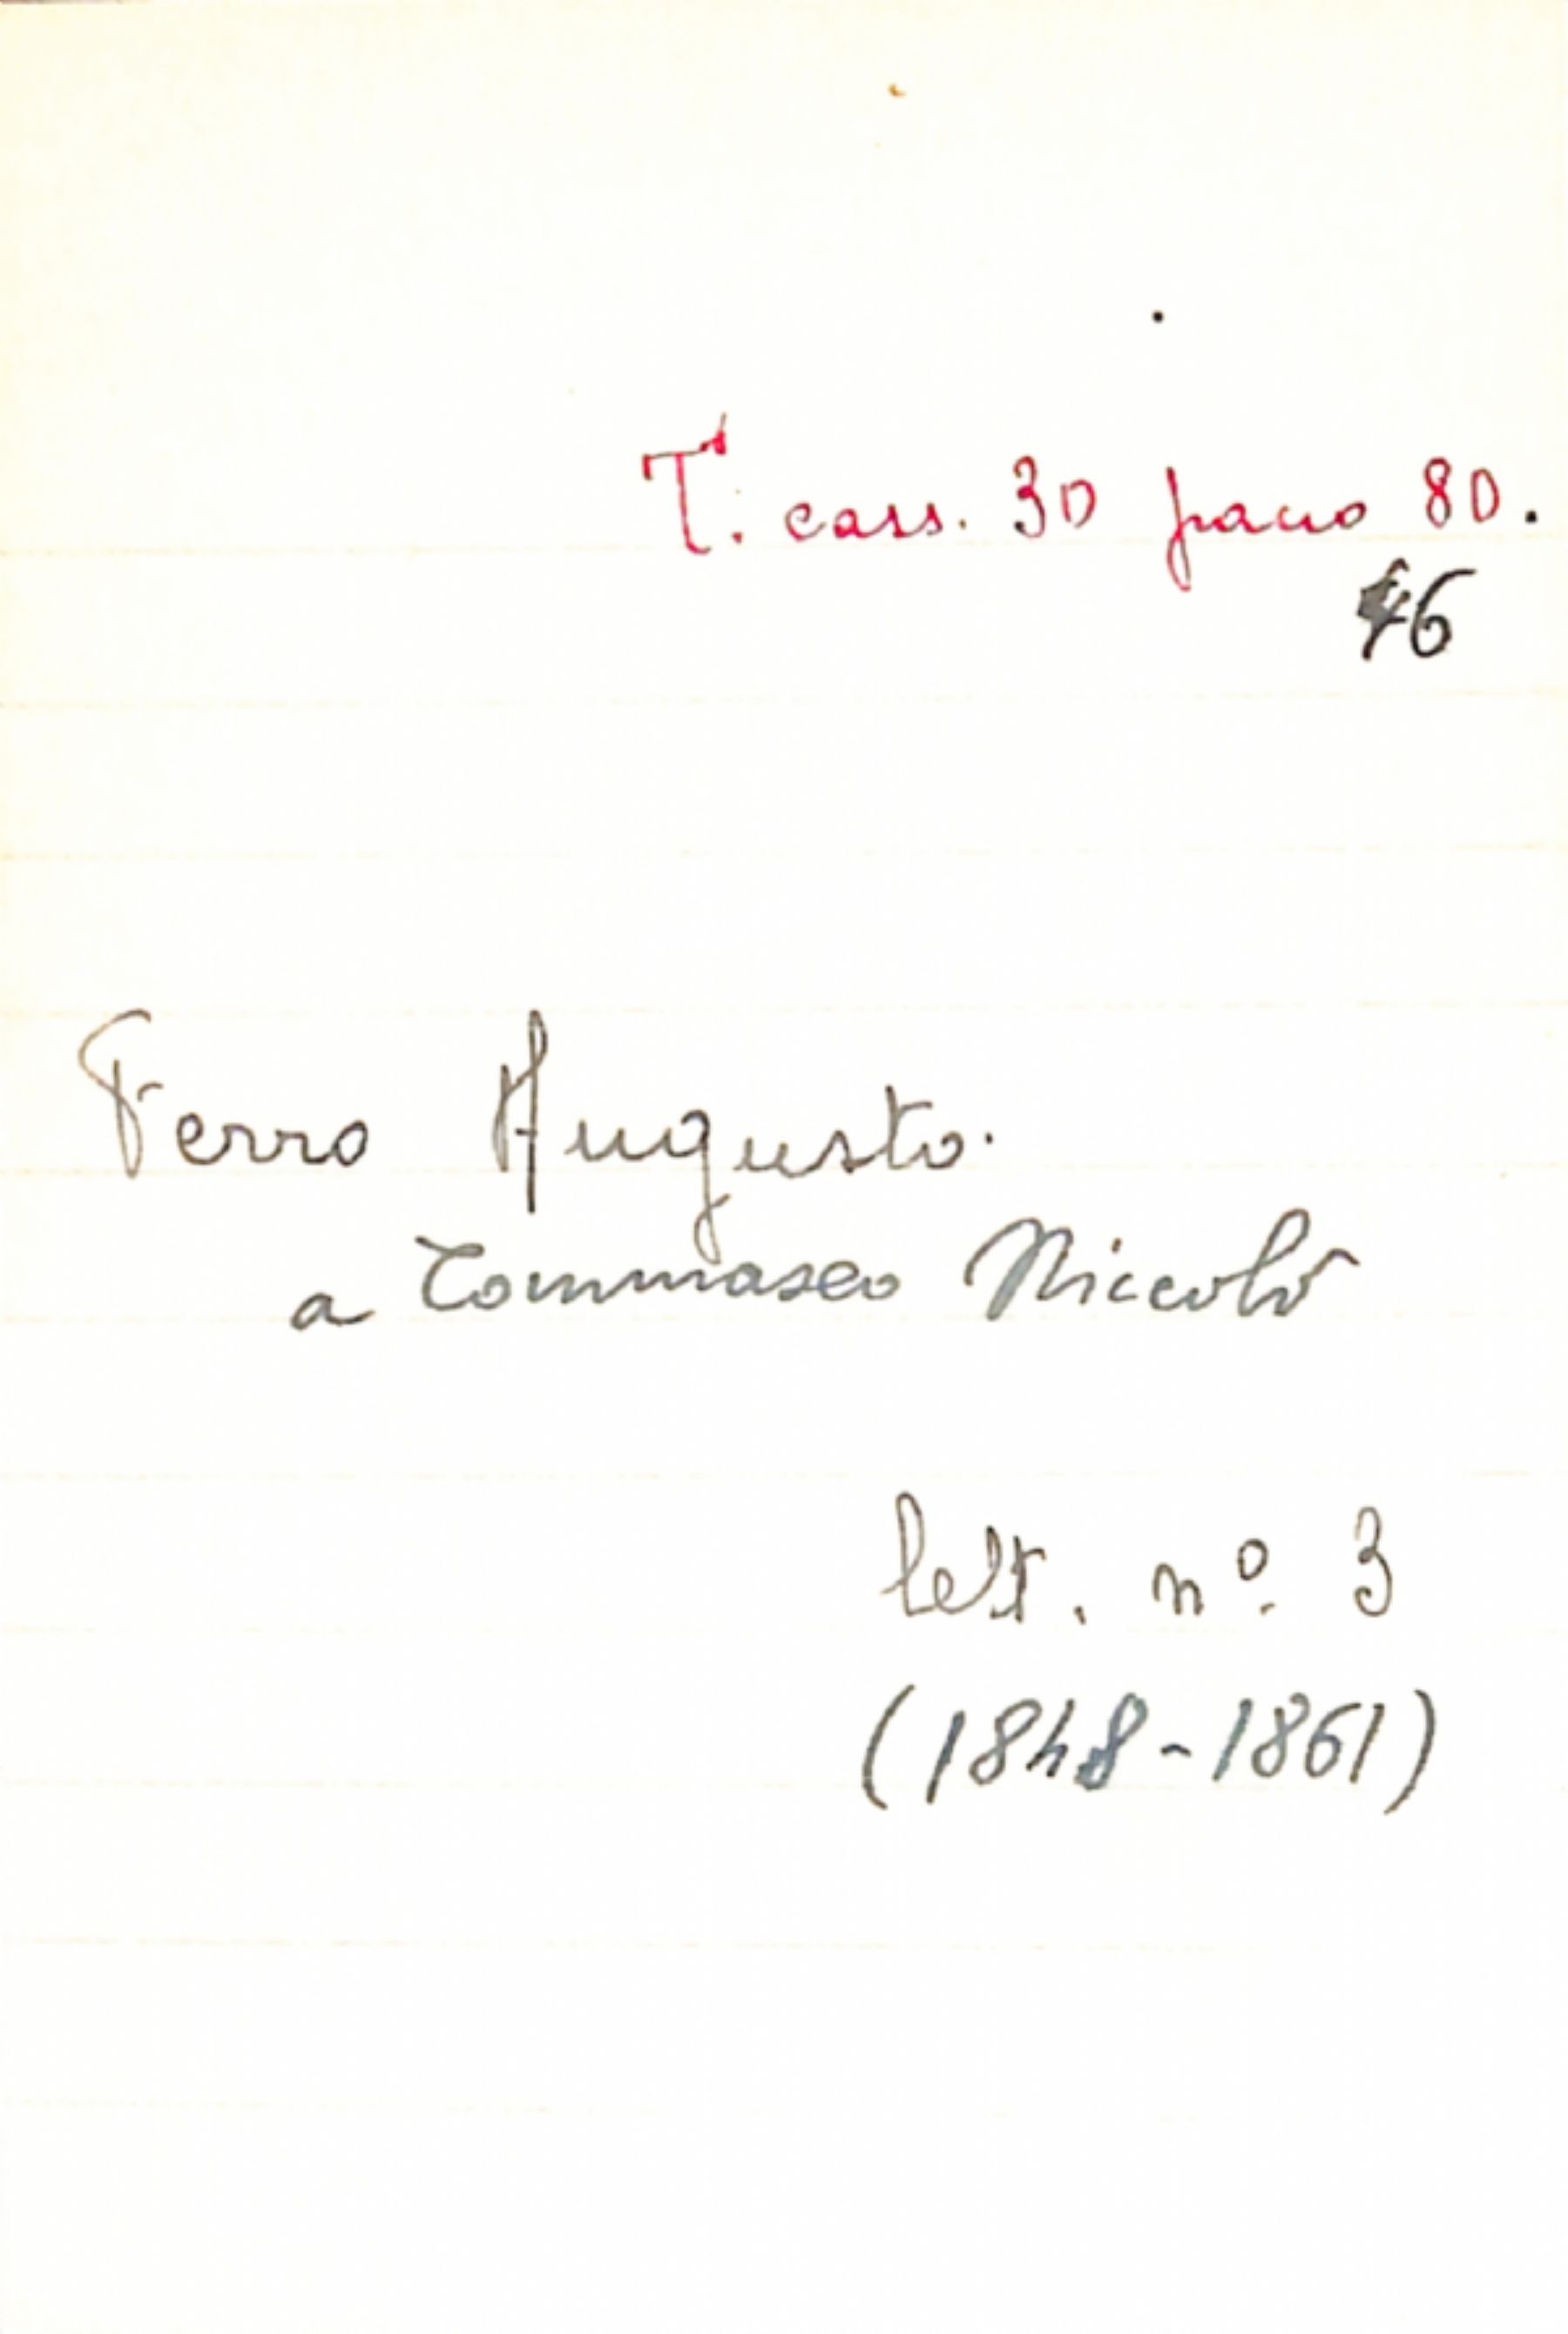 T. cass. 30 pacco 80.
46
Ferro Augusto.
a Tommaseo Niccolò
lett. nº. 3
(1848-1861)